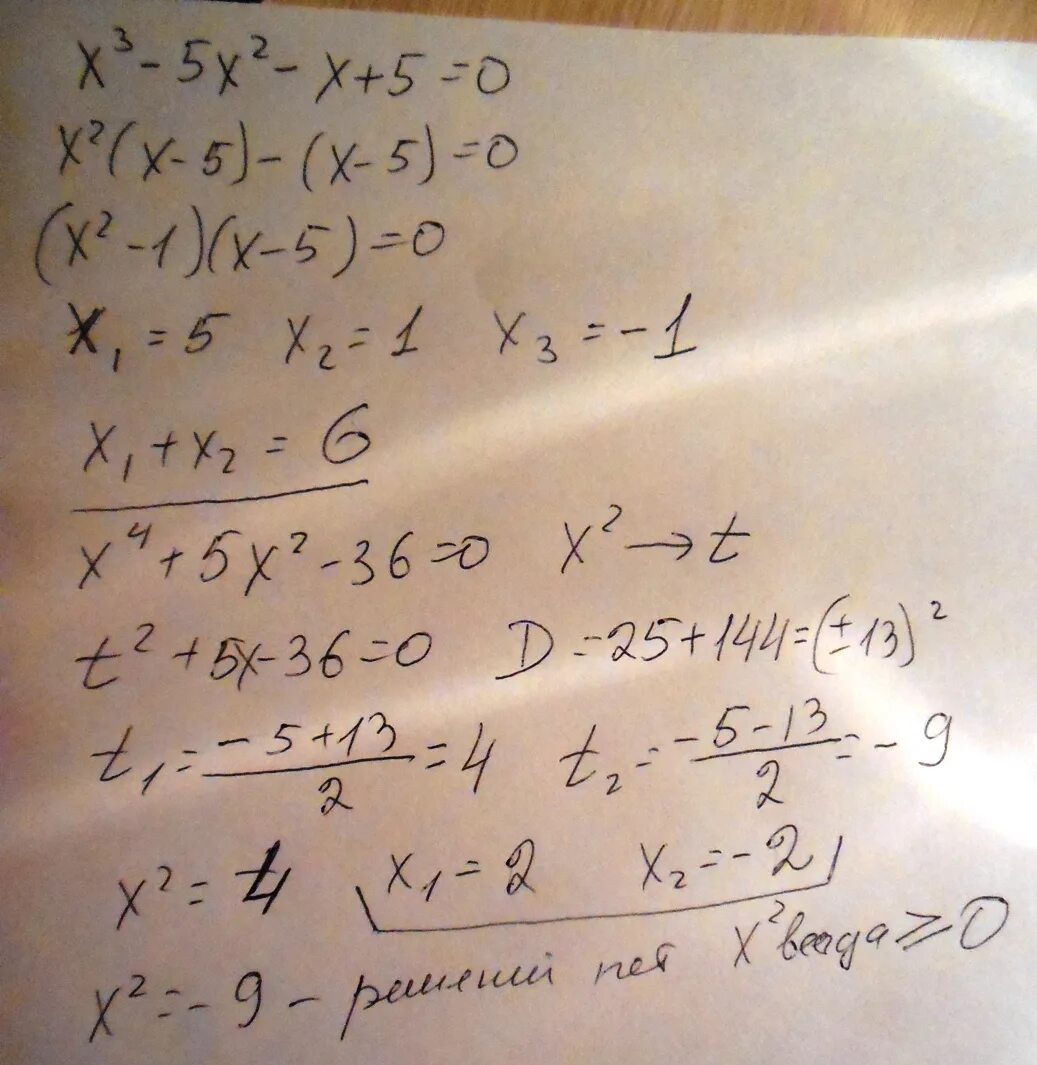 x³ - 5x² - x + 5 = 0
x²(x - 5) - (x - 5) = 0
(x² - 1)(x - 5) = 0
x₁ = 5 x₂ = 1 x₃ = -1
x₁ + x₂ = 6
x⁴ + 5x² - 36 = 0 x² → t
t² + 5x - 36 = 0 D = 25 + 144 = (±13)²
t₁ = (-5 + 13)/2 = 4 t₂ = (-5 - 13)/2 = -9
x² = 4 x₁ = 2 x₂ = -2
x² = -9 - решений нет x² всегда ≥ 0